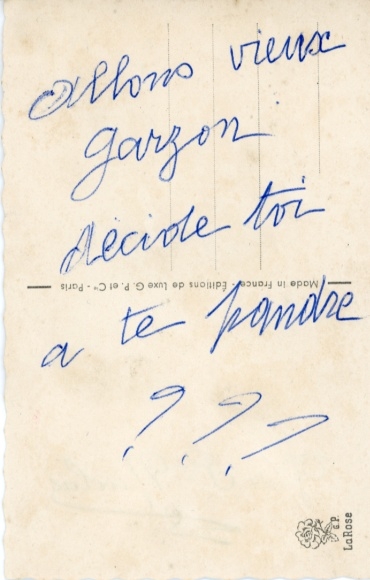 Allons vieux
garzon
décide toi
Made in France - Éditions de Luxe G. P. et Cie - Paris
a te pandre
? ? ?
G.P.
LaRose